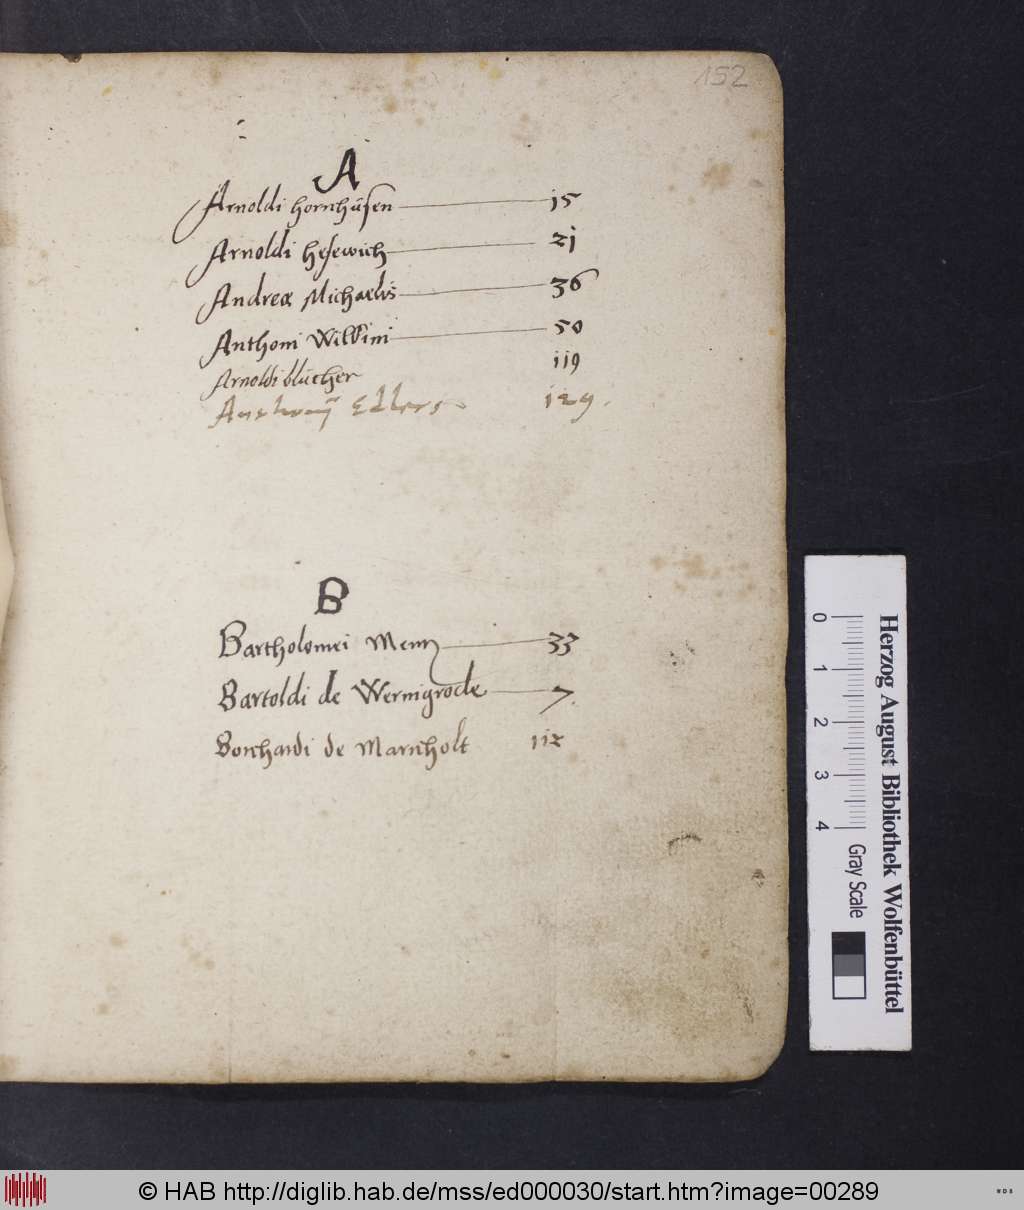 152
A
Arnoldi hornhusen 15
Arnoldi hesewich 21
Andreæ Michaelis 36
Anthoni Wilkini 50
Arnoldi blücher 119
Anthonÿ Edlers 129.
B
Bartholomei Menz 33
Bartoldi de Wernigrode 7
Borchardi de Marnholt 112
Herzog August Bibliothek Wolfenbüttel
0 1 2 3 4 Gray Scale
© HAB http://diglib.hab.de/mss/ed000030/start.htm?image=00289